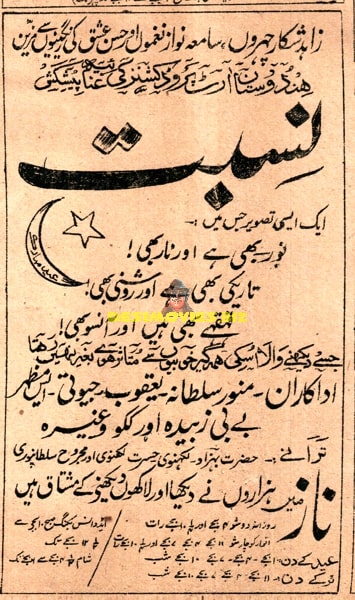 زاہد شکار چہروں، سامعہ نواز نغموں اور حسن عشق کی رنگینیوں سے مزین
ہندوستان آرٹ پروڈکشنز کی پیشکش
نسبت
عید مبارک
ایک ایسی تصویر جس میں :-
نور بھی ہے اور نار بھی !
تاریکی بھی ہے اور روشنی بھی !
قہقہے بھی ہیں اور آنسو بھی !
جسے دیکھنے والا اسکی ہمہ گیر خوبیوں سے متاثر ہوئے بغیر نہیں رہتا
اداکاران - منور سلطانہ - یعقوب - جیوتی - ایس مظہر
بے بی زبیدہ اور ککو وغیرہ
ترانے :- حضرت بہزاد - لکھنوی حسرت لکھنوی اور مجروح سلطانپوری
ناز میں ہزاروں نے دیکھا اور لاکھوں دیکھنے کے مشتاق ہیں
روزانہ دو شو ۴ بجے اور ۱۰ بجے رات
اتوار کو چار شو
عید کے دن :-
شام ۴ بجے تک